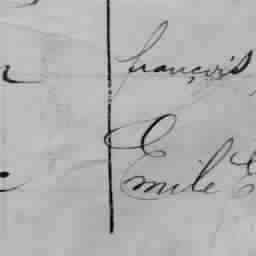 françois
Emile E